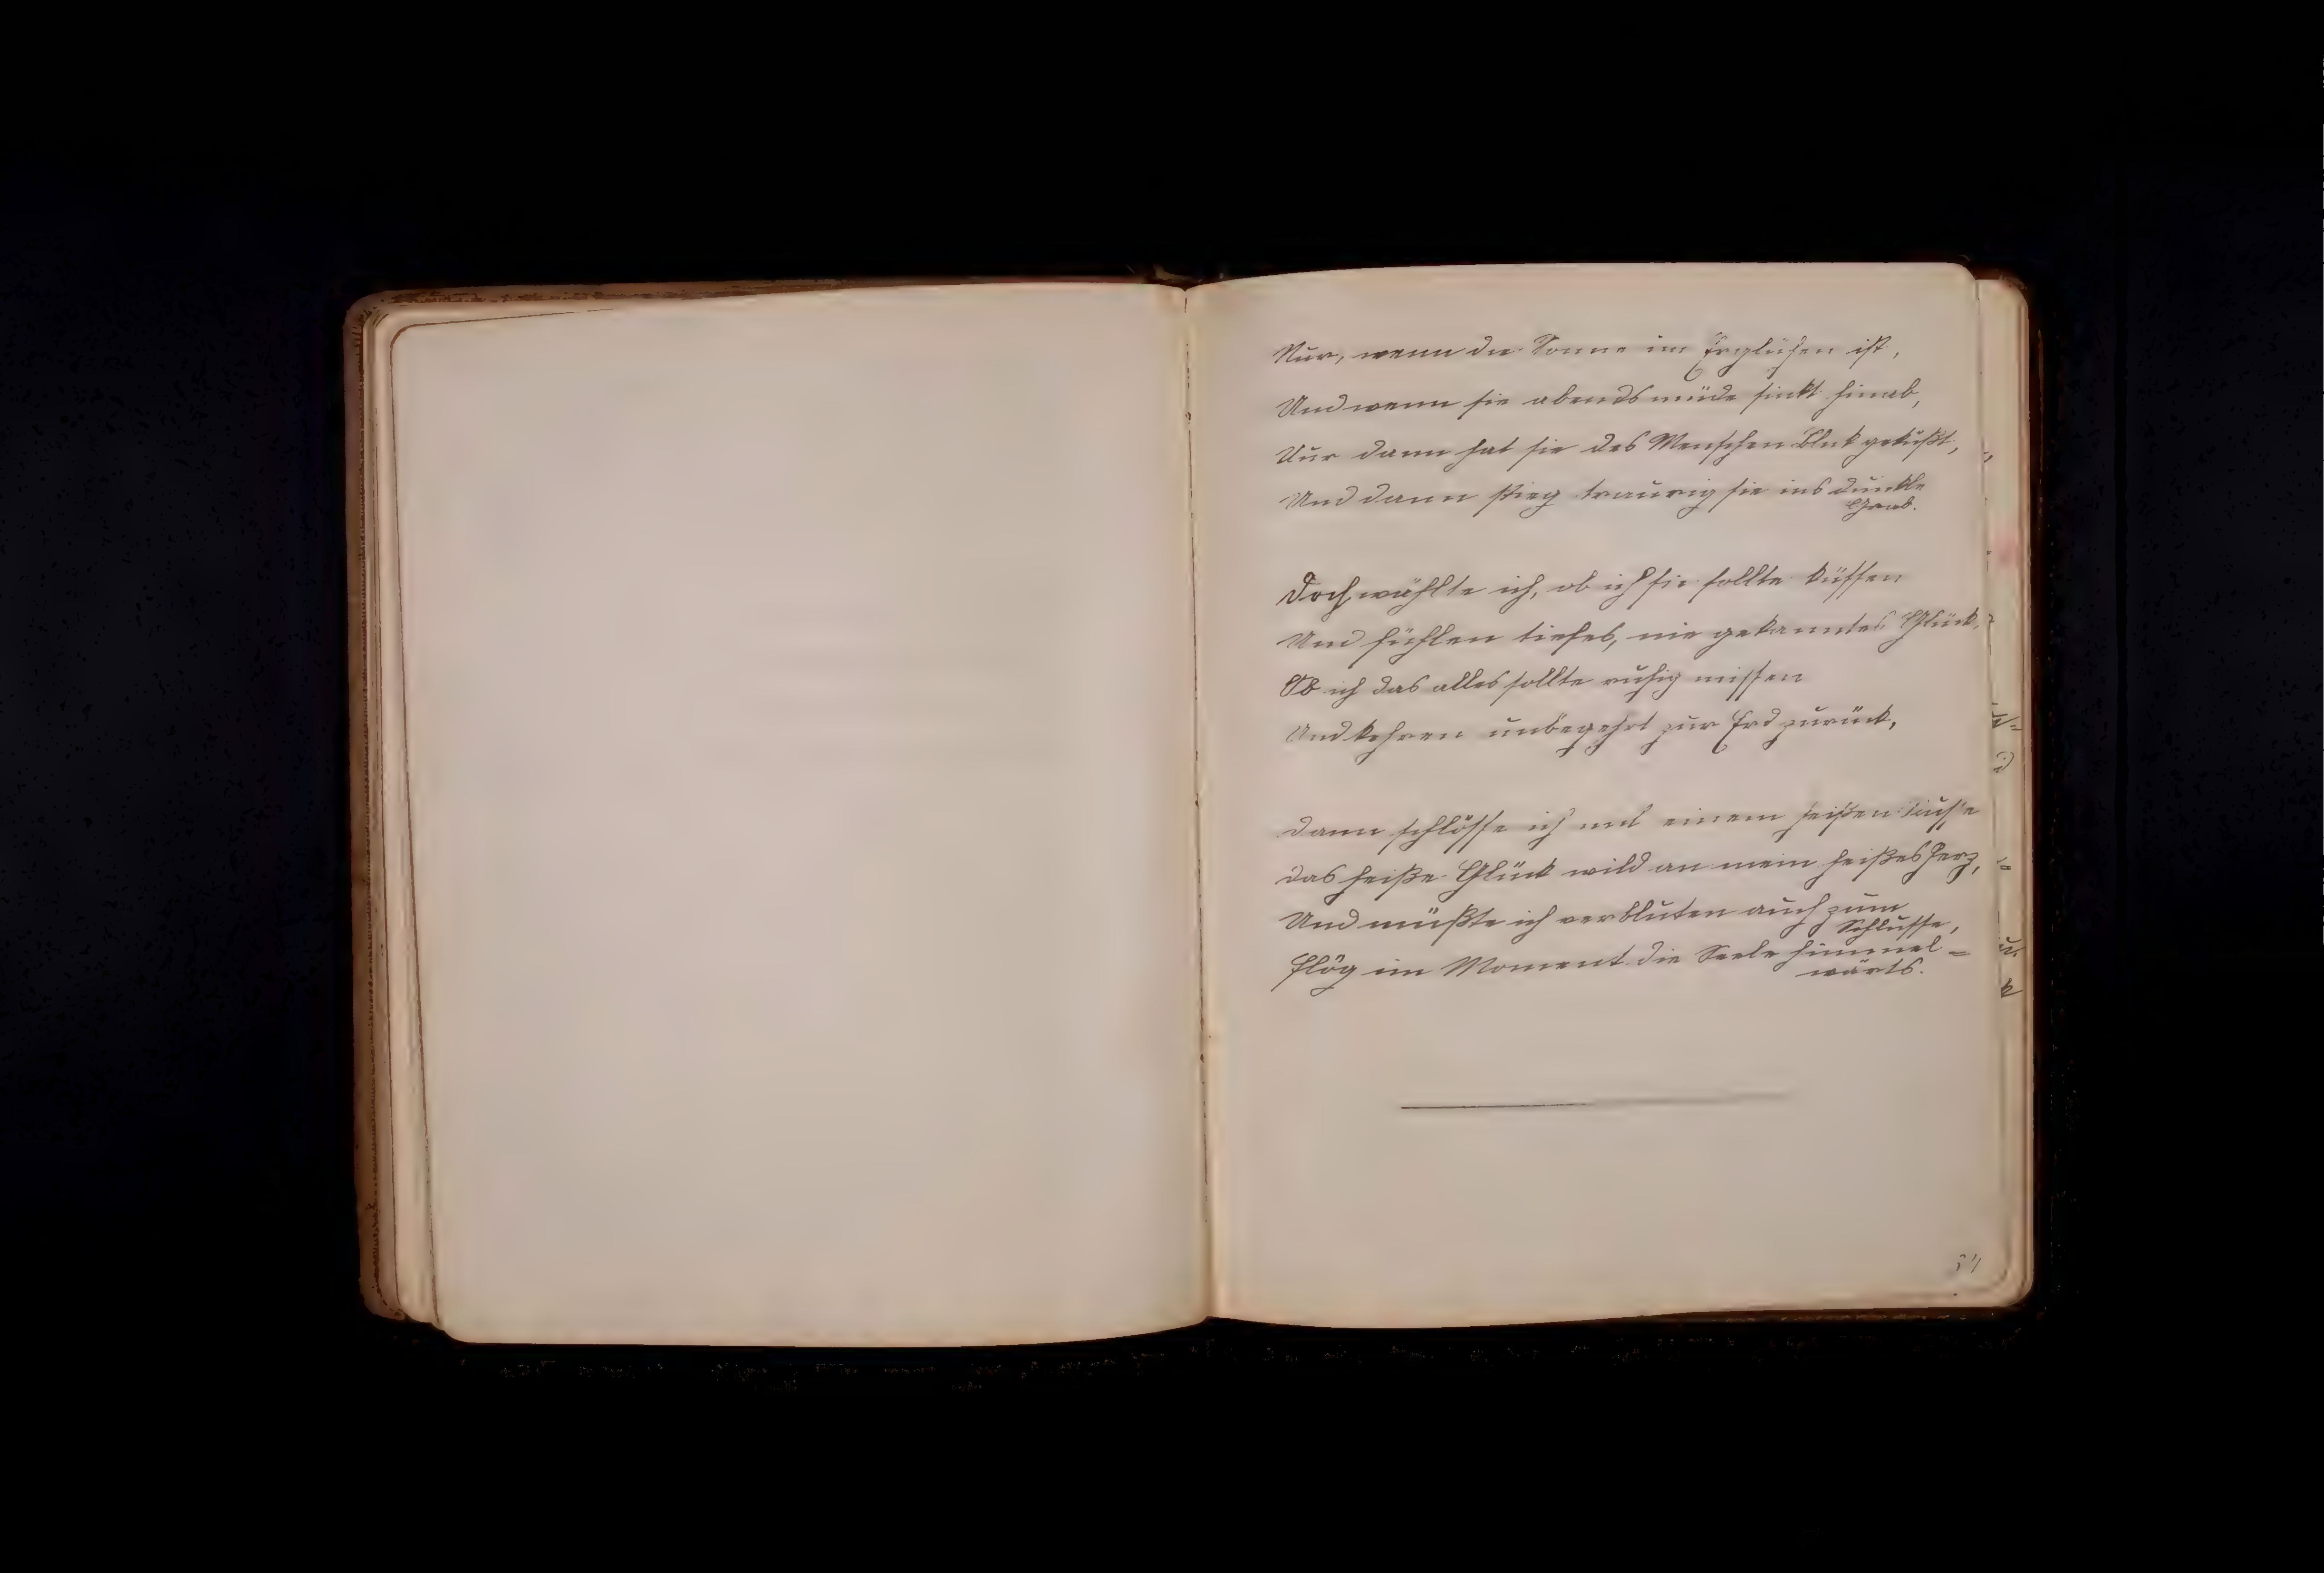 Nur, wenn die Sonne im Erglühen ist,
Und wenn sie abends müde sinkt hinab,
Nur dann hat sie des Menschen Blut geküßt,
Und dann stieg traurig sie ins dunkle
Grab.
Doch wählte ich, ob ich sie sollte küssen
Und fühlen tiefes, nie gekanntes Glück,
Ob ich das alles sollte ruhig missen
Und kehren unbegehrt zur Erd zurück,
Dann schlösse ich mit einem heißen Kusse
Das heiße Glück wild an mein heißes Herz,
Und müßte ich verbluten auch zum
Schlusse,
Flög im Moment die Seele himmel=
wärts.